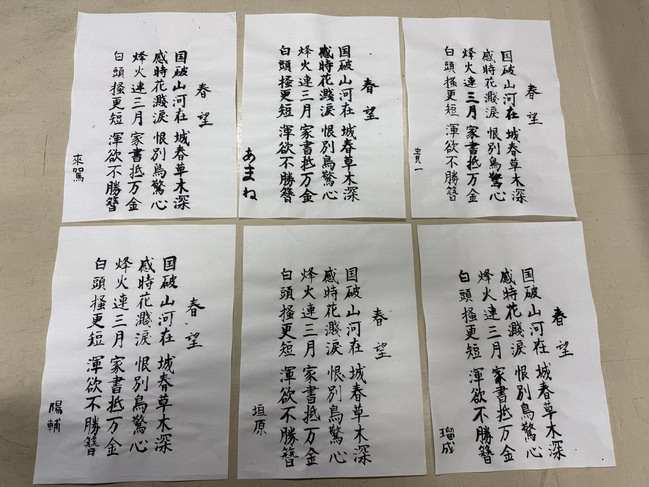 春望
国破山河在 城春草木深
感時花濺涙 恨別鳥驚心
烽火連三月 家書抵万金
白頭掻更短 渾欲不勝簪
春望
国破山河在 城春草木深
感時花濺涙 恨別鳥驚心
烽火連三月 家書抵万金
白頭掻更短 渾欲不勝簪
あまね
春望
国破山河在 城春草木深
感時花濺涙 恨別鳥驚心
烽火連三月 家書抵万金
白頭掻更短 渾欲不勝簪
貴一
春望
国破山河在 城春草木深
感時花濺涙 恨別鳥驚心
烽火連三月 家書抵万金
白頭掻更短 渾欲不勝簪
陽輔
春望
国破山河在 城春草木深
感時花濺涙 恨別鳥驚心
烽火連三月 家書抵万金
白頭掻更短 渾欲不勝簪
垣原
春望
国破山河在 城春草木深
感時花濺涙 恨別鳥驚心
烽火連三月 家書抵万金
白頭掻更短 渾欲不勝簪
瑠成